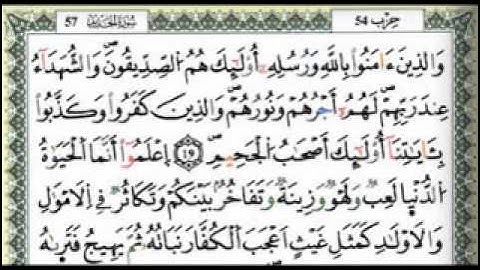 حِزْب 54 سُورَةُ الحَدِيد 57
وَالَّذِينَ ءَامَنُوا بِاللَّهِ وَرُسُلِهِ أُوْلَٰٓئِكَ هُمُ الصِّدِّيقُونَ وَالشُّهَدَآءُ
عِندَ رَبِّهِمْ لَهُمُۥٓ أَجْرُهُمْ وَنُورُهُمْ وَالَّذِينَ كَفَرُوا وَكَذَّبُوا
بِـَٔايَٰتِنَآ أُوْلَٰٓئِكَ أَصْحَٰبُ الْجَحِيمِ ١٩ اِعْلَمُوٓا أَنَّمَا الْحَيَوٰةُ
الدُّنْيَا لَعِبٌ وَلَهْوٌ وَزِينَةٌ وَتَفَاخُرٌ بَيْنَكُمْ وَتَكَاثُرٌ فِي الْأَمْوَٰلِ
وَالْأَوْلَٰدِ كَمَثَلِ غَيْثٍ أَعْجَبَ الْكُفَّارَ نَبَاتُهُۥ ثُمَّ يَهِيجُ فَتَر۪ىٰهُ